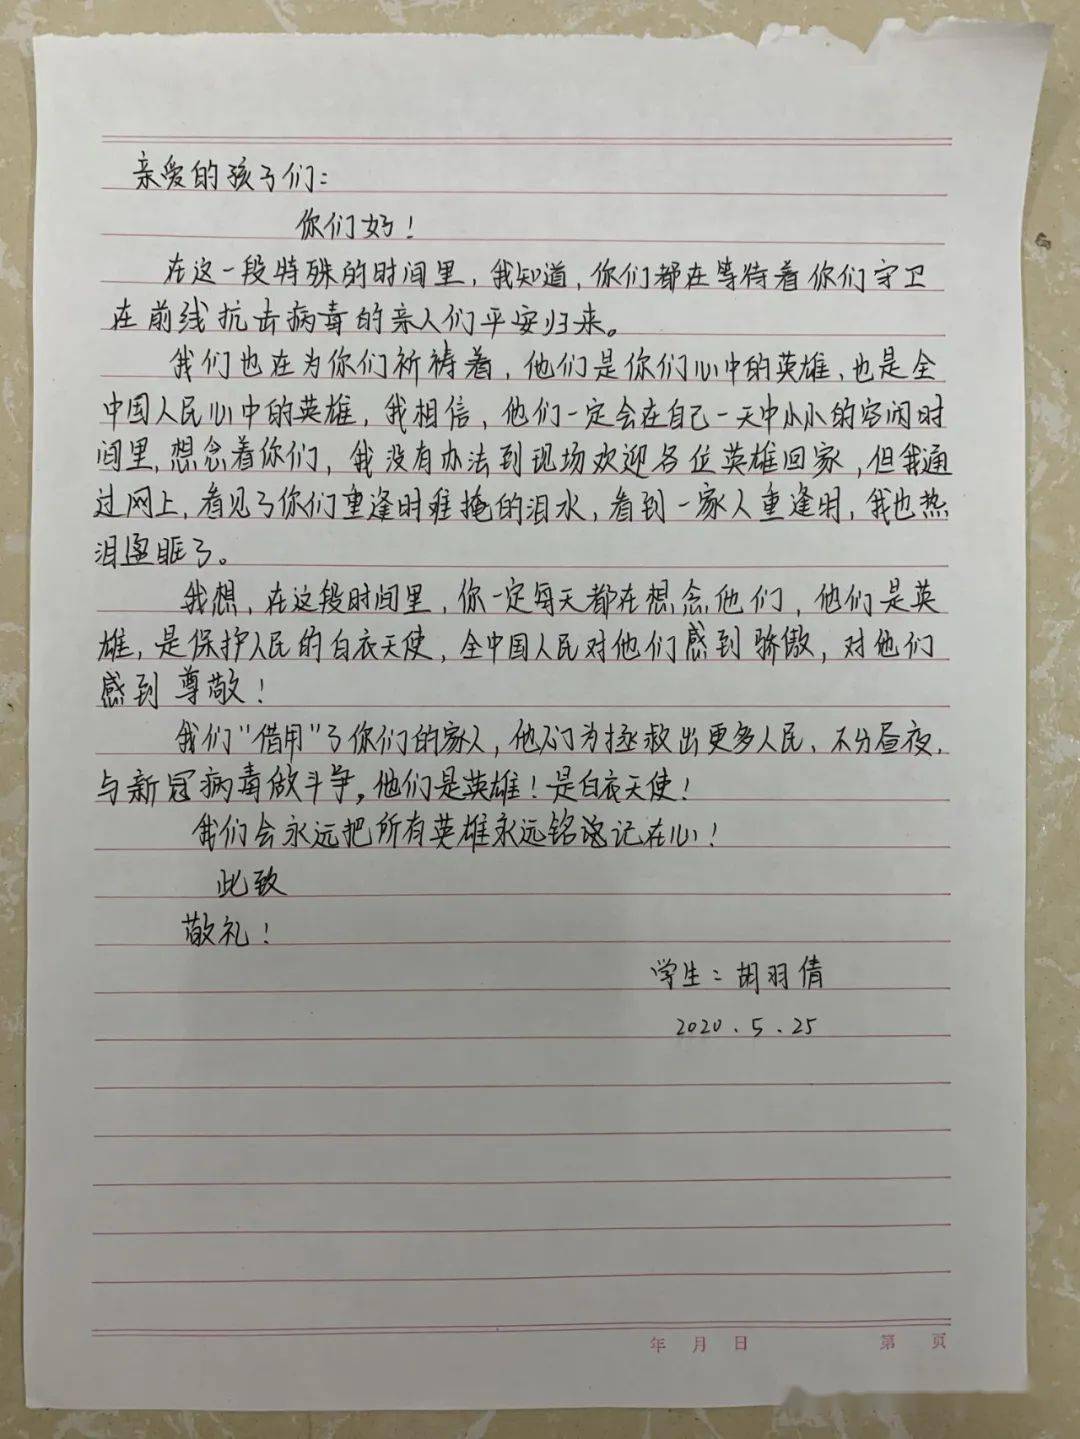 亲爱的孩子们：
你们好！
在这一段特殊的时间里，我知道，你们都在等待着你们守卫
在前线抗击病毒的亲人们平安归来。
我们也在为你们祈祷着，他们是你们心中的英雄、也是全
中国人民心中的英雄，我相信，他们一定会在自己一天中小小的空闲时
间里，想念着你们，我没有办法到现场欢迎各位英雄回家，但我通
过网上，看见了你们重逢时难掩的泪水，看到一家人重逢时，我也热
泪盈眶了。
我想，在这段时间里，你一定每天都在想念他们，他们是英
雄，是保护人民的白衣天使，全中国人民对他们感到骄傲，对他们
感到尊敬！
我们“借用”了你们的家人，他们为拯救出更多人民、不分昼夜，
与新冠病毒做斗争，他们是英雄！是白衣天使！
我们会永远把所有英雄永远铭记在心！
此致
敬礼！
学生：胡羽倩
2020.5.25
年 月 日 第 页